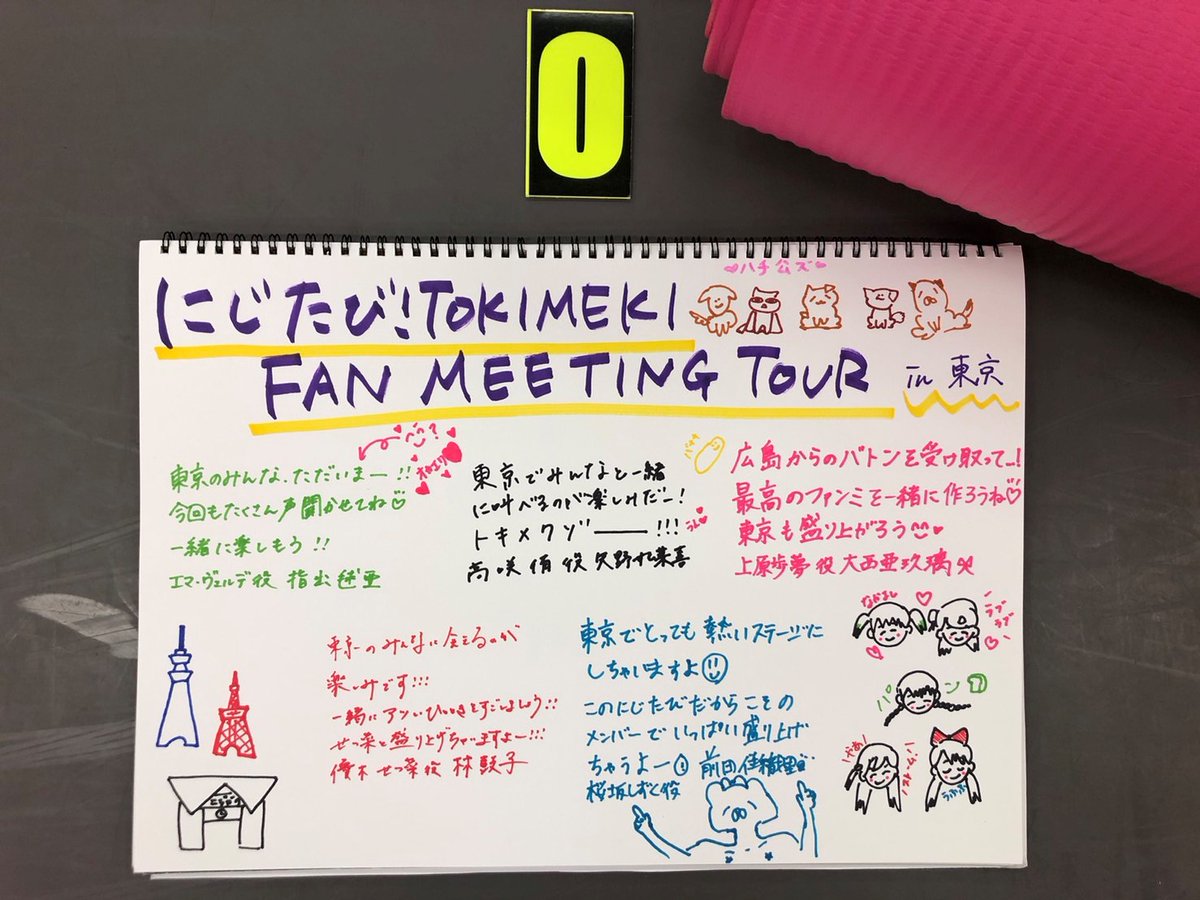 0
♡ハチ公ズ♡
にじたび!TOKIMEKI
FAN MEETING TOUR in 東京
東京のみんな、ただいまー!!
今回もたくさん声聞かせてね♡
一緒に楽しもう!!
エマ・ヴェルデ役 指出毬亜
東京でみんなと一緒
に叫べるのが楽しみだー!
トキメクゾーー!!!
高咲侑役 矢野妃菜喜
広島からのバトンを受け取って…!
最高のファンミを一緒に作ろうね♡
東京も盛り上がろう
上原歩夢役 大西亜玖璃
東京のみんなに会えるのが
楽しみです!!!
一緒にアツいひとときをすごしましょう!!
せつ菜と盛り上げちゃいますよー!!!
優木せつ菜役 林鼓子
東京でとっても熱いステージに
しちゃいますよ
このにじたびだからこその
メンバーでいっぱい盛り上げ
ちゃうよー! 前田佳織里
桜坂しずく役
なかよし
ラブラブ
パン